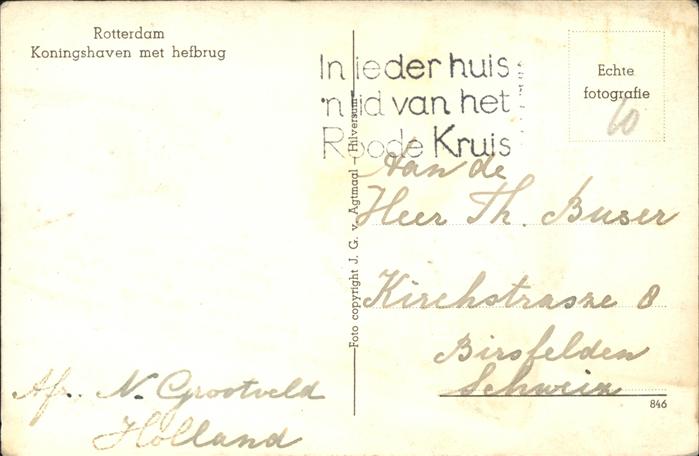 Rotterdam
Koningshaven met hefbrug
In ieder huis
'n lid van het
Roode Kruis
Echte
fotografie
60
Foto copyright J. G. v. Agtmaal - Hilversum
Aan de
Heer Th. Buser
Kirchstrasze 8
Birsfelden
Schweiz
846
Afz. N. Grootveld
Holland